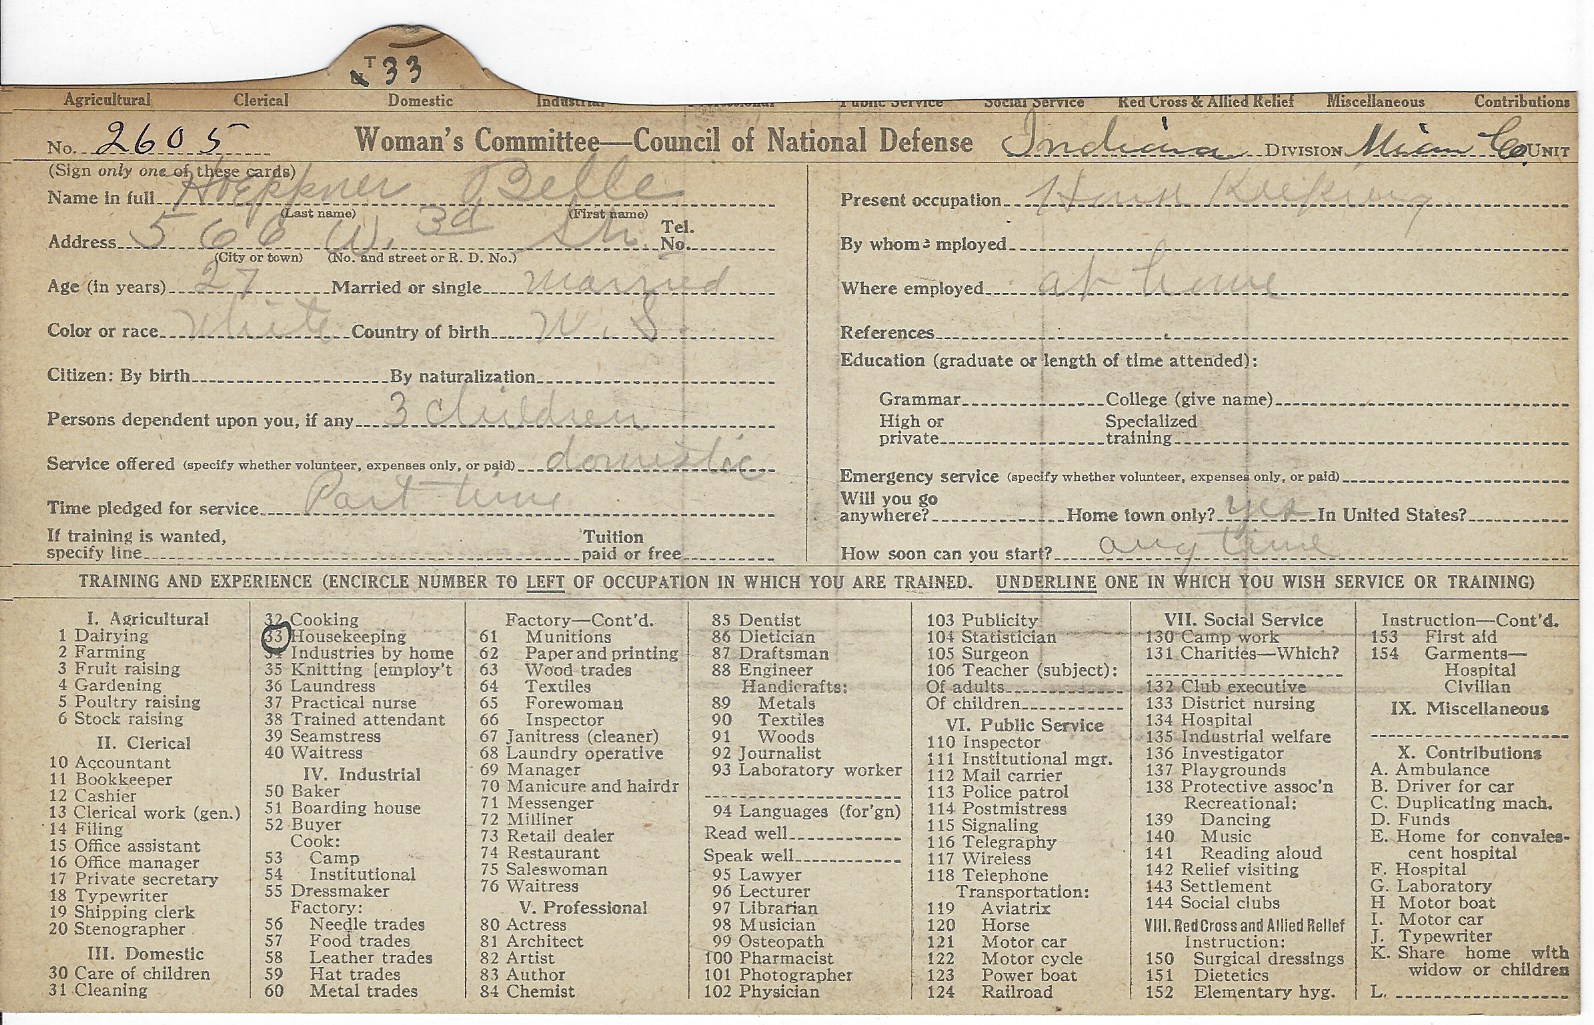 T 33
Agricultural Clerical Domestic Industrial Professional Public Service Social Service Red Cross & Allied Relief Miscellaneous Contributions
No. 2605 Woman's Committee—Council of National Defense Indiana DIVISION Miami Co. UNIT
(Sign only one of these cards)
Name in full Hoeppner Belle
(Last name) (First name)
Address 566 W. 3d Str. Tel. No.
(City or town) (No. and street or R. D. No.)
Age (in years) 27 Married or single married
Color or race White Country of birth U. S.
Citizen: By birth By naturalization
Persons dependent upon you, if any 3 children
Service offered (specify whether volunteer, expenses only, or paid) domestic
Time pledged for service Part time
If training is wanted, specify line Tuition paid or free
Present occupation House Keeping
By whom employed
Where employed at home
References
Education (graduate or length of time attended):
Grammar College (give name)
High or private Specialized training
Emergency service (specify whether volunteer, expenses only, or paid)
Will you go anywhere? Home town only? yes In United States?
How soon can you start? any time
TRAINING AND EXPERIENCE (ENCIRCLE NUMBER TO LEFT OF OCCUPATION IN WHICH YOU ARE TRAINED. UNDERLINE ONE IN WHICH YOU WISH SERVICE OR TRAINING)
I. Agricultural
1 Dairying
2 Farming
3 Fruit raising
4 Gardening
5 Poultry raising
6 Stock raising
II. Clerical
10 Accountant
11 Bookkeeper
12 Cashier
13 Clerical work (gen.)
14 Filing
15 Office assistant
16 Office manager
17 Private secretary
18 Typewriter
19 Shipping clerk
20 Stenographer
III. Domestic
30 Care of children
31 Cleaning
32 Cooking
33 Housekeeping
34 Industries by home
35 Knitting [employ't
36 Laundress
37 Practical nurse
38 Trained attendant
39 Seamstress
40 Waitress
IV. Industrial
50 Baker
51 Boarding house
52 Buyer
Cook:
53 Camp
54 Institutional
55 Dressmaker
Factory:
56 Needle trades
57 Food trades
58 Leather trades
59 Hat trades
60 Metal trades
Factory—Cont'd.
61 Munitions
62 Paper and printing
63 Wood trades
64 Textiles
65 Forewoman
66 Inspector
67 Janitress (cleaner)
68 Laundry operative
69 Manager
70 Manicure and hairdr
71 Messenger
72 Milliner
73 Retail dealer
74 Restaurant
75 Saleswoman
76 Waitress
V. Professional
80 Actress
81 Architect
82 Artist
83 Author
84 Chemist
85 Dentist
86 Dietician
87 Draftsman
88 Engineer
Handicrafts:
89 Metals
90 Textiles
91 Woods
92 Journalist
93 Laboratory worker
94 Languages (for'gn)
Read well
Speak well
95 Lawyer
96 Lecturer
97 Librarian
98 Musician
99 Osteopath
100 Pharmacist
101 Photographer
102 Physician
103 Publicity
104 Statistician
105 Surgeon
106 Teacher (subject):
Of adults
Of children
VI. Public Service
110 Inspector
111 Institutional mgr.
112 Mail carrier
113 Police patrol
114 Postmistress
115 Signaling
116 Telegraphy
117 Wireless
118 Telephone
Transportation:
119 Aviatrix
120 Horse
121 Motor car
122 Motor cycle
123 Power boat
124 Railroad
VII. Social Service
130 Camp work
131 Charities—Which?
132 Club executive
133 District nursing
134 Hospital
135 Industrial welfare
136 Investigator
137 Playgrounds
138 Protective assoc'n
Recreational:
139 Dancing
140 Music
141 Reading aloud
142 Relief visiting
143 Settlement
144 Social clubs
VIII. Red Cross and Allied Relief
Instruction:
150 Surgical dressings
151 Dietetics
152 Elementary hyg.
Instruction—Cont'd.
153 First aid
154 Garments—
Hospital
Civilian
IX. Miscellaneous
X. Contributions
A. Ambulance
B. Driver for car
C. Duplicating mach.
D. Funds
E. Home for convales-
cent hospital
F. Hospital
G. Laboratory
H Motor boat
I. Motor car
J. Typewriter
K. Share home with
widow or children
L.